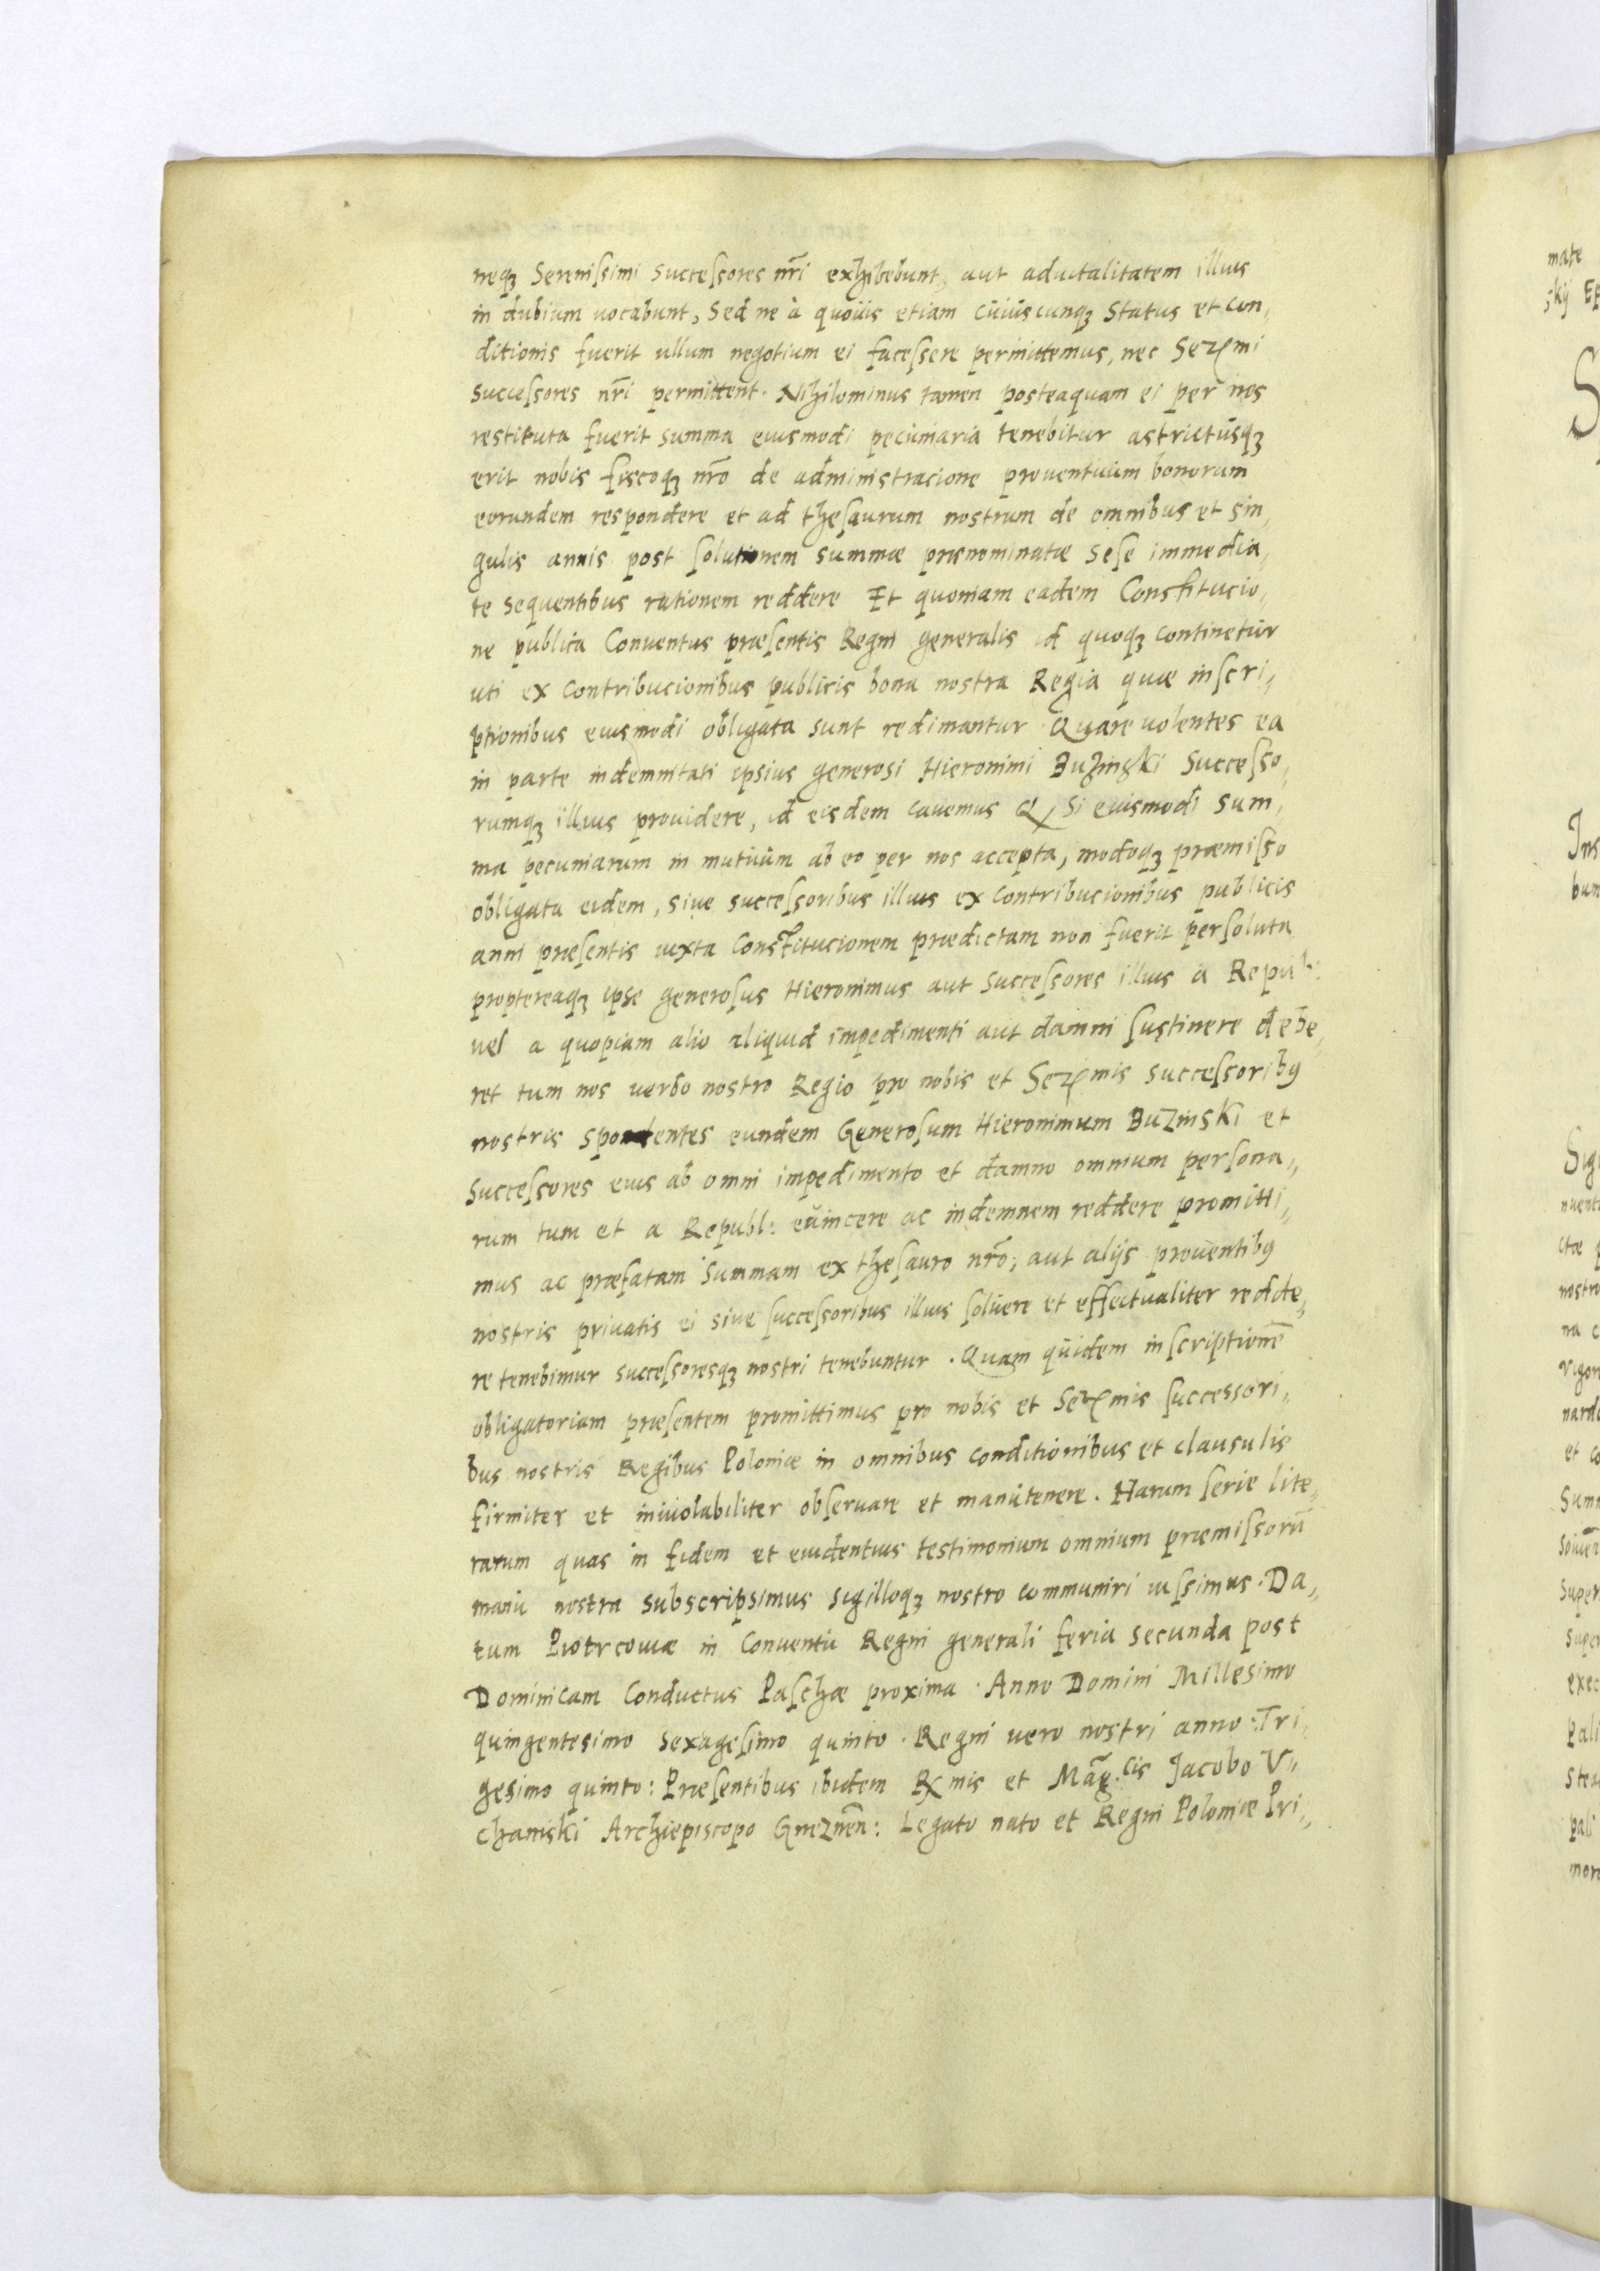 neqꝫ Serenißimi succeßores nr̃i exhibebunt, aut aduitalitatem illius
in dubium uocabunt, Sed ne à quouis etiam cuiuscunqꝫ Status et con,
ditionis fuerit ullum negotium ei faceßere permittemus, nec Serᵐⁱ
succeßores nr̃i permittent. Nihilominus tamen posteaquam ei per nos
restituta fuerit summa eiusmodi pecuniaria tenebitur astrictusqꝫ
erit nobis fiscoqꝫ nr̃o de administracione prouentuum bonorum
eorundem respondere et ad theſaurum nostrum de omnibus et sin,
gulis annis post ſolutionem summæ prænominatæ seſe immedia,
te sequentibus rationem reddere Et quoniam eadem Constitucio,
ne publica Conuentus præſentis Regni generalis id quoqꝫ continetur
uti ex contribucionibus publicis bona nostra Regia quæ inſcri,
ptionibus eiusmodi obligata sunt redimantur. Quare uolentes ea
in parte indemnitati ipsius generosi Hieronimi Buzinski Succeßo,
rumqꝫ illius prouidere, id eisdem cauemus Qꝫ Si eiusmodi sum,
ma pecuniarum in mutuum ab eo per nos accepta, modoqꝫ præmißo
obligata eidem, siue succeßoribus illius ex contribucionibus publicis
anni præſentis iuxta Constitucionem prædictam non fuerit perſoluta
proptereaqꝫ ipse generoſus Hieronimus aut Succeßores illius a Repub:
uel a quopiam alio aliquid impedimenti aut damni ſustinere debe,
ret tum nos uerbo nostro Regio pro nobis et Serᵐⁱˢ succeßoribꝰ
nostris spondentes eundem Generoſum Hieronimum Buzinski et
Succeßores eius ab omni impedimento et damno omnium perſona,,
rum tum et a Republ: euincere ac indemnem reddere promitti,,
mus ac præfatam Summam ex theſauro nr̃o, aut alijs prouentibꝰ
nostris priuatis ei siue ſucceßoribus illius ſoluere et effectualiter redde,
re tenebimur succeßoresqꝫ nostri tenebuntur. Quam quidem inscriptionẽ
obligatoriam præſentem promittimus pro nobis et Serᵐⁱˢ ſuccessori,,
bus nostris Regibus Poloniæ in omnibus conditionibus et clausulis
firmiter et inuiolabiliter obſeruare et manutenere. Harum ſerie lite,,
rarum quas in fidem et euidentius testimonium omnium præmißorũ
manu nostra subscripsimus sigilloqꝫ nostro communiri iußimus. Da,,
tum Piotrcouiæ in Conuentu Regni generali feria secunda post
Dominicam Conductus Paſchæ proxima. Anno Domini Millesimo
quingentesimo sexageſimo quinto. Regni uero nostri anno Tri,
gesimo quinto: Præſentibus ibidem Rᵐⁱˢ et Mãg.cis Jacobo V,,
chanski Archiepiscopo Gneznẽn: Legato nato et Regni Poloniæ Pri,,
mate